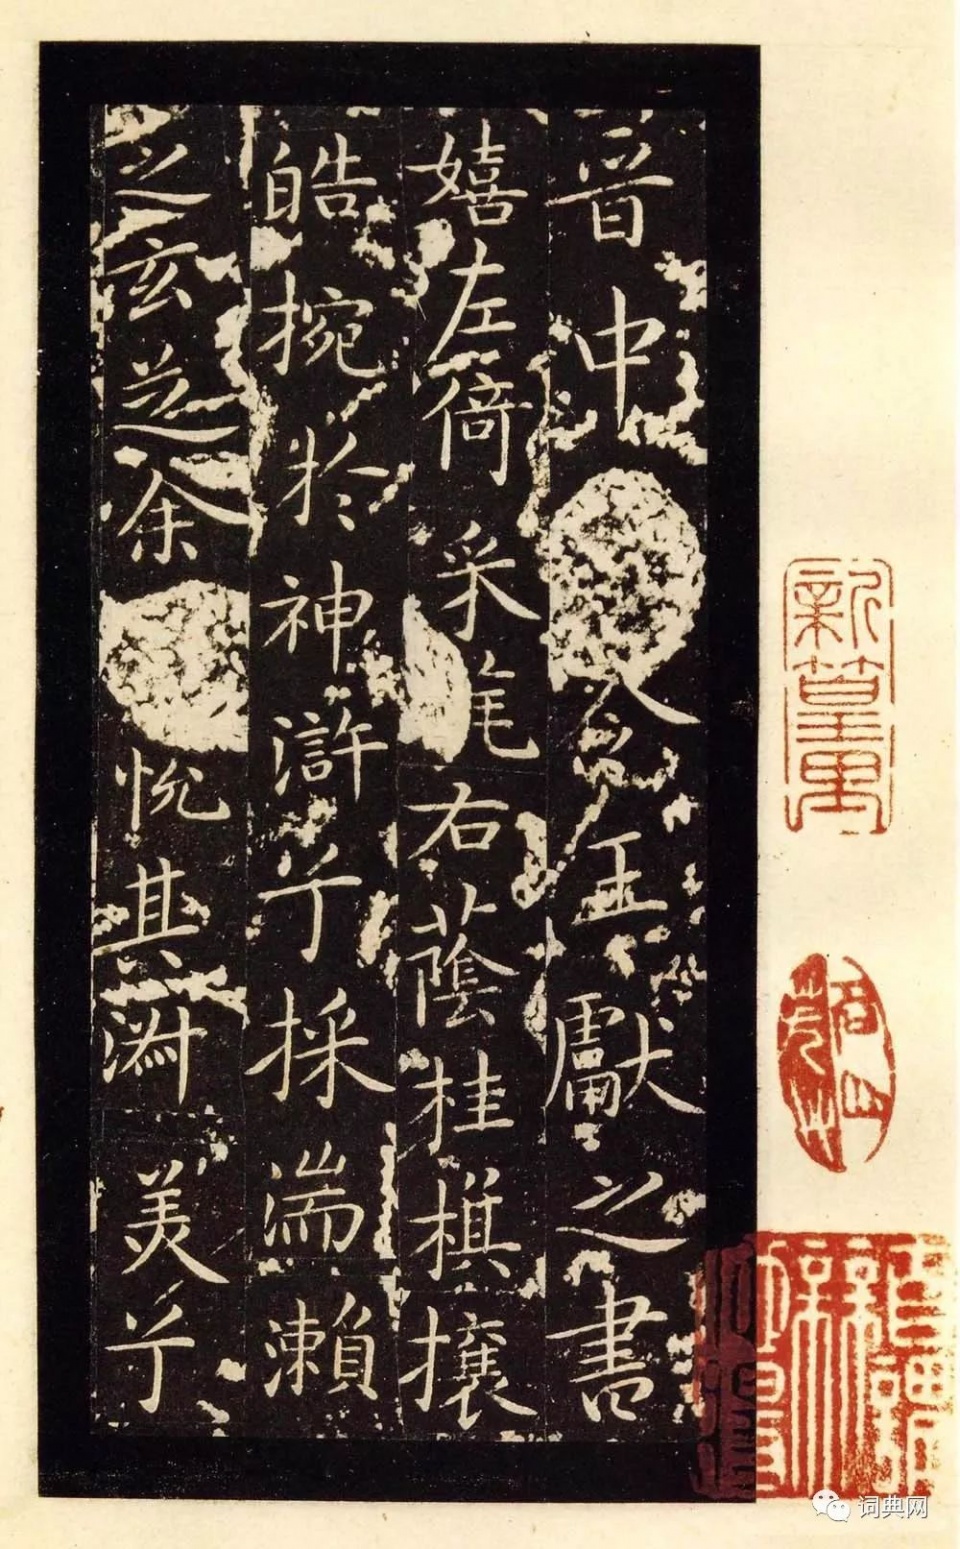 晉中
令王獻之書
嬉左倚采旄右蔭桂棋攘
皓捥於神滸兮採湍瀨
之玄芝余
悅其淑美兮
词典网